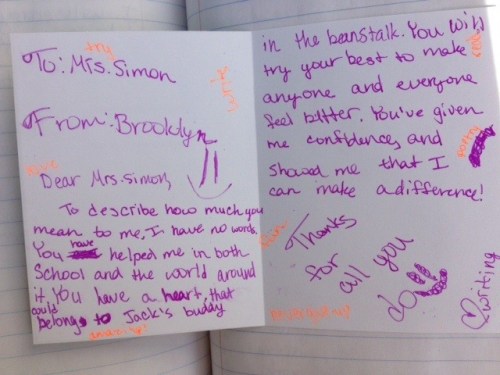 try
To: Mrs. Simon
From: Brooklyn
Dear Mrs. Simon,
To describe how much you
mean to me, I have no words.
You have helped me in both
School and the world around
it. You have a heart, that
could
belong to Jack's buddy
in the beanstalk. You will
try your best to make
anyone and everyone
feel better. You've given
me confidence, and
Showed me that I
can make a difference!
Thanks
for
all you
do
writing